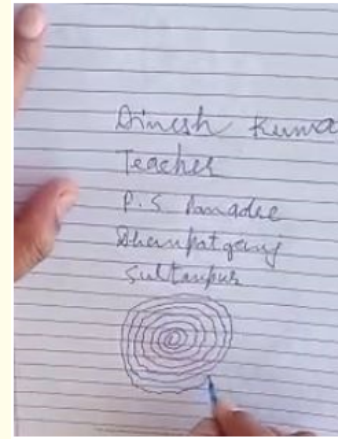 Dinesh Kuma
Teacher
P.S. Pamadee
Dhanpatganj
Sultanpur